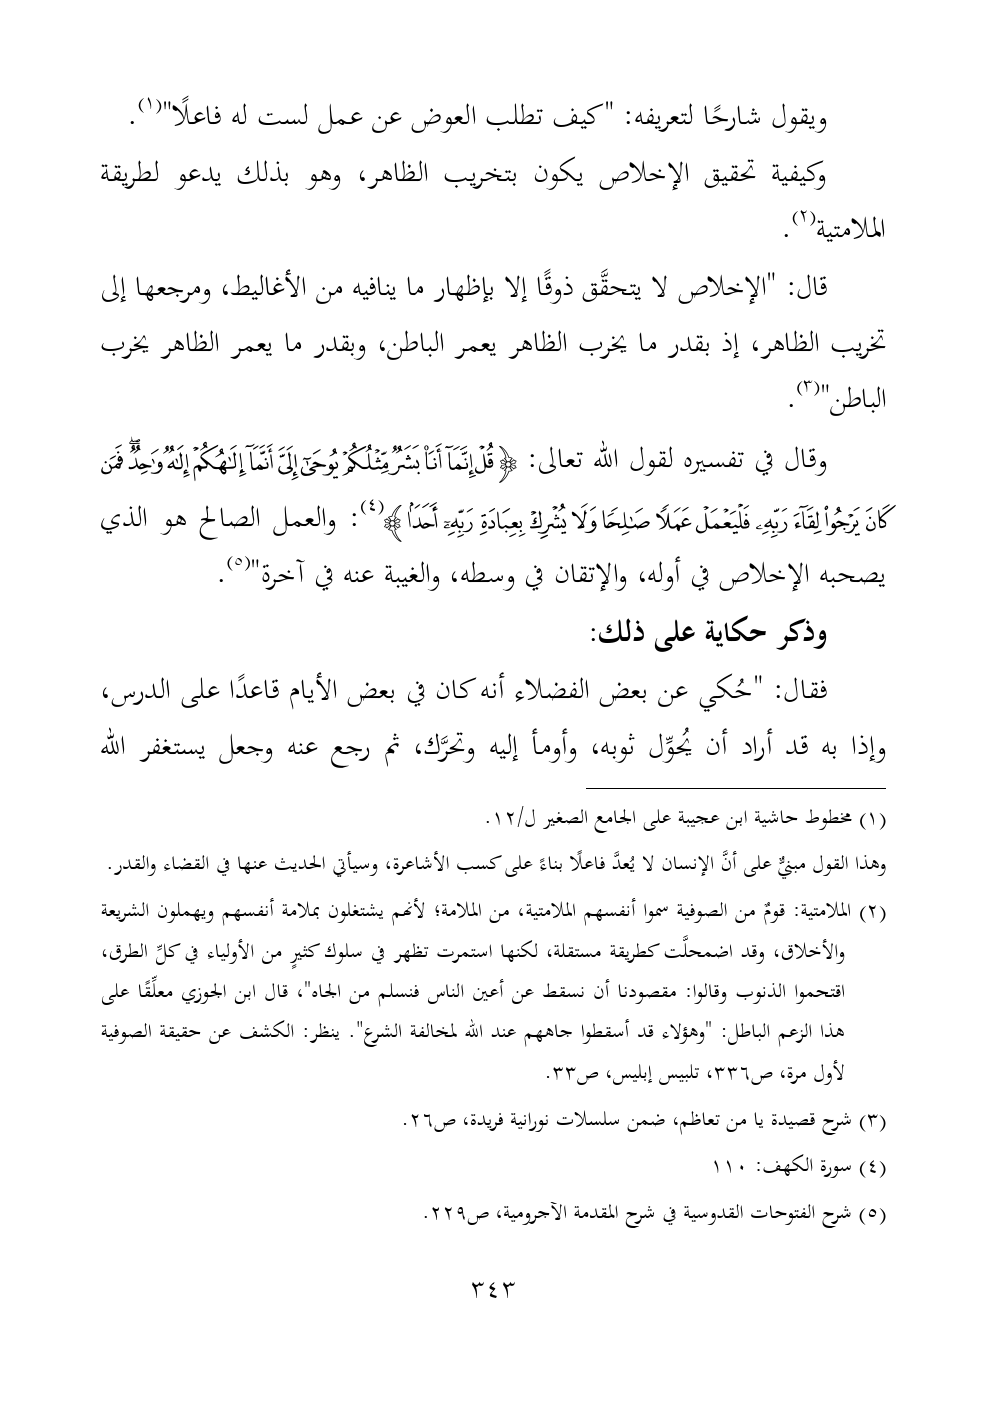 ويقول شارحًا لتعريفه: "كيف تطلب العوض عن عمل لست له فاعلًا"(١).
وكيفية تحقيق الإخلاص يكون بتخريب الظاهر، وهو بذلك يدعو لطريقة
الملامتية(٢).
قال: "الإخلاص لا يتحقَّق ذوقًا إلا بإظهار ما ينافيه من الأغاليط، ومرجعها إلى
تخريب الظاهر، إذ بقدر ما يخرب الظاهر يعمر الباطن، وبقدر ما يعمر الظاهر يخرب
الباطن"(٣).
وقال في تفسيره لقول الله تعالى: ﴿قُلْ إِنَّمَآ أَنَا۠ بَشَرٌ مِّثْلُكُمْ يُوحَىٰٓ إِلَىَّ أَنَّمَآ إِلَٰهُكُمْ إِلَٰهٌ وَٰحِدٌۖ فَمَن
كَانَ يَرْجُوا۟ لِقَآءَ رَبِّهِۦ فَلْيَعْمَلْ عَمَلًا صَٰلِحًا وَلَا يُشْرِكْ بِعِبَادَةِ رَبِّهِۦٓ أَحَدًۢا﴾(٤): والعمل الصالح هو الذي
يصحبه الإخلاص في أوله، والإتقان في وسطه، والغيبة عنه في آخرة"(٥).
وذكر حكاية على ذلك:
فقال: "حُكي عن بعض الفضلاء أنه كان في بعض الأيام قاعدًا على الدرس،
وإذا به قد أراد أن يُحوِّل ثوبه، وأومأ إليه وتحرَّك، ثم رجع عنه وجعل يستغفر الله
(١) مخطوط حاشية ابن عجيبة على الجامع الصغير ل/١٢.
وهذا القول مبنيٌّ على أنَّ الإنسان لا يُعدَّ فاعلًا بناءً على كسب الأشاعرة، وسيأتي الحديث عنها في القضاء والقدر.
(٢) الملامتية: قومٌ من الصوفية سموا أنفسهم الملامتية، من الملامة؛ لأنهم يشتغلون بملامة أنفسهم ويهملون الشريعة
والأخلاق، وقد اضمحلَّت كطريقة مستقلة، لكنها استمرت تظهر في سلوك كثيرٍ من الأولياء في كلِّ الطرق،
اقتحموا الذنوب وقالوا: مقصودنا أن نسقط عن أعين الناس فنسلم من الجاه"، قال ابن الجوزي معلِّقًا على
هذا الزعم الباطل: "وهؤلاء قد أسقطوا جاههم عند الله لمخالفة الشرع". ينظر: الكشف عن حقيقة الصوفية
لأول مرة، ص٣٣٦، تلبيس إبليس، ص٣٣.
(٣) شرح قصيدة يا من تعاظم، ضمن سلسلات نورانية فريدة، ص٢٦.
(٤) سورة الكهف: ١١٠
(٥) شرح الفتوحات القدوسية في شرح المقدمة الآجرومية، ص٢٢٩.
٣٤٣